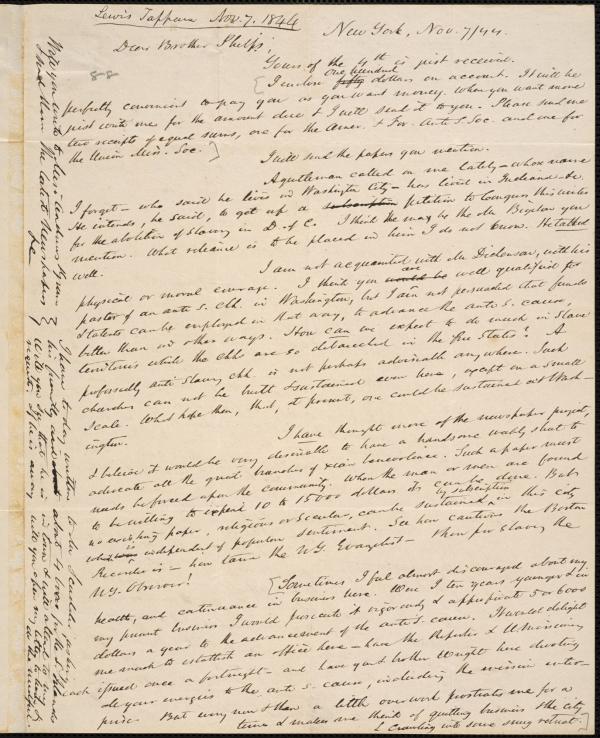 Lewis Tappan Nov. 7, 1844
New York, Nov. 7/44.
Dear Brother Phelps,
88
Yours of the 4th is just received.
I enclose fifty one hundred dollars on account. It will be
perfectly convenient to pay you as you want money. When you want more
just write me for the amount due & I will send it to you. Please send me
two receipts of equal sums, one for the Amer. & For. Anti S. Soc. and one for
the Union Miss. Soc.]
I will send the papers you mention.
A gentleman called on me lately - whose name
I forget - who said he lives in Washington City - has lived in Indiana &c.
He intends, he said, to get up a subscription petition to Congress this winter
for the abolition of slavery in D. of C. I think he may be the Mr Bigelow you
mention. What reliance is to be placed in him I do not know. He talked
well.
I am not acquainted with Mr Dickenson, with his
physical or moral courage. I think you would be are well qualified for
pastor of an anti s. chh. in Washington, but I am not persuaded that funds
& talents can be employed in that way, to advance the anti s. cause,
better than in other ways. How can we expect to do much in slave
territories while the chhs are so debauched in the free States? A
professedly anti slavery chh. is not perhaps advisable any where. Such
churches can not be built & sustained even here, except on a small
scale. What hope then, that, at present, one could be sustained at Wash-
ington.
I have thought more of the newspaper project,
I believe it would be very desirable to have a handsome weekly sheet to
advocate all the great branches of xian benevolence. Such a paper must
needs be forced upon the community. When the man or men are found
to be willing to expend 10 to 15000 dollars it can be done. But
no existing paper, religious or secular, can be sustained by subscription in this city
which is independent of popular sentiment. See how cautious the Boston
Recorder is - how tame the N.Y. Evangelist - how pro slavery the
N.Y. Observer!
[Sometimes I feel almost discouraged about my
health, and continuance in business here. Were I ten years younger & in
my present business I would prosecute it vigorously & appropriate 5 or 6000
dollars a year to the advancement of the anti s. cause. It would delight
me much to establish an office here - have the Reporter & U. Missionary
each issued once a fortnight - and have you & brother Wright here devoting
all your energies to the anti s. cause, including the mission enter-
prise. But every now & then a little overwork prostrates me for a
time & makes me think of quitting business & the city
& crawling into some snug retreat.]